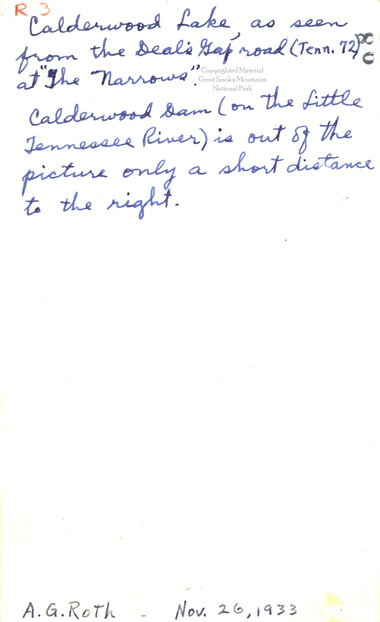 R 3
Calderwood Lake, as seen
from the Deal's Gap road (Tenn. 72)
at "The Narrows".
Copyrighted Material
Great Smoky Mountains
National Park
Calderwood Dam (on the Little
Tennessee River) is out of the
picture only a short distance
to the right.
A.G. Roth - Nov. 26, 1933